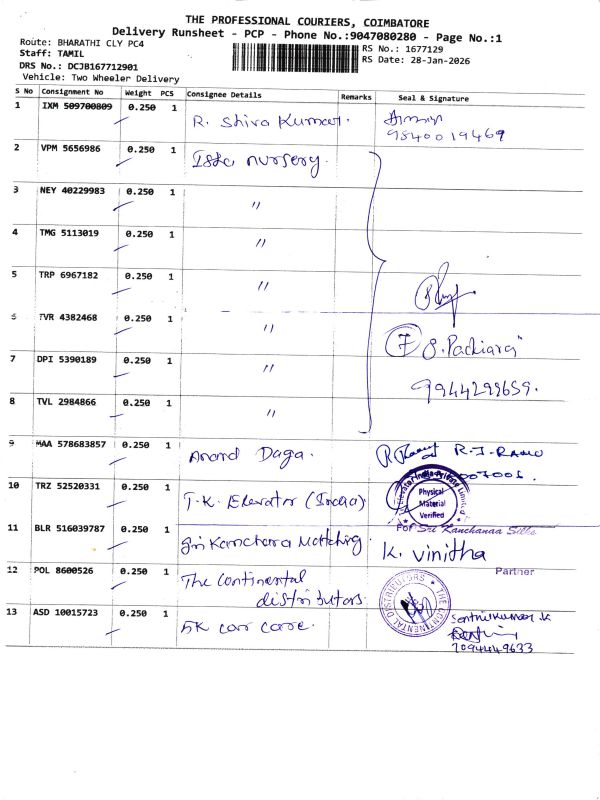 THE PROFESSIONAL COURIERS, COIMBATORE
Delivery Runsheet - PCP - Phone No.:9047080280 - Page No.:1
Route: BHARATHI CLY PC4
RS No.: 1677129
Staff: TAMIL
RS Date: 28-Jan-2026
DRS No.: DCJB167712901
Vehicle: Two Wheeler Delivery
S No Consignment No Weight PCS Consignee Details Remarks Seal & Signature
1 IXM 509700809 0.250 1 R. Shiva Kumar.
9840019469
2 VPM 5656986 0.250 1 Isha nursery.
3 NEY 40229983 0.250 1 "
4 TMG 5113019 0.250 1 "
5 TRP 6967182 0.250 1 "
6 TVR 4382468 0.250 1 "
7 S. Packiaraj
7 DPI 5390189 0.250 1 "
9944299659.
8 TVL 2984866 0.250 1 "
9 MAA 578683857 0.250 1 Anand Daga. R-J-RAMU
10 TRZ 52520331 0.250 1 T-K. Elevator (India)
Physical
Material
Verified
For Sri Kanchanaa Silks
11 BLR 516039787 0.250 1 Sri Kanchana Matching. K. Vinitha
Partner
12 POL 8600526 0.250 1 The Continental
distributors.
THE CONTINENTAL DISTRIBUTORS
13 ASD 10015723 0.250 1 5K car care.
Senthilkumar.K